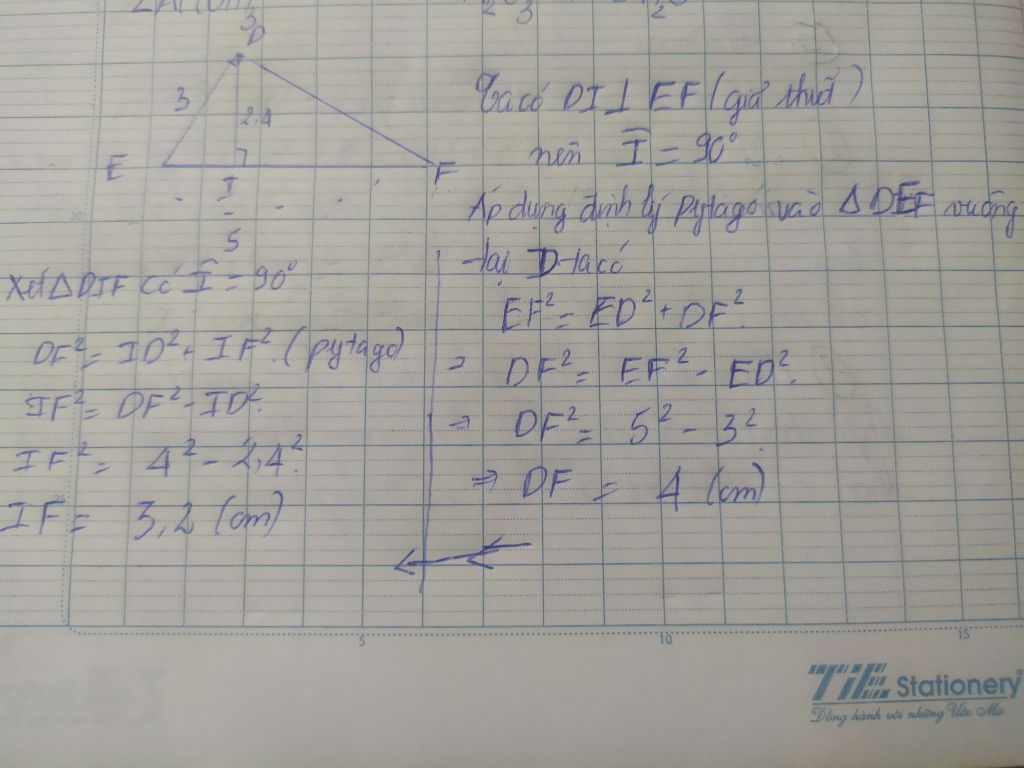 D
3
2,4
E
F
I
5
Ta có DI⊥EF (giả thuết)
nên Î = 90°
Áp dụng định lý pytago vào ΔDEF vuông
tại D ta có
EF² = ED² + DF²
⇒ DF² = EF² - ED²
⇒ DF² = 5² - 3²
⇒ DF = 4 (cm)
Xét ΔDIF có Î = 90°
DF² = ID² + IF² (pytago)
IF² = DF² - ID²
IF² = 4² - 2,4²
IF = 3,2 (cm)
5
10
15
TiTi Stationery
Đồng hành với những Ước Mơ